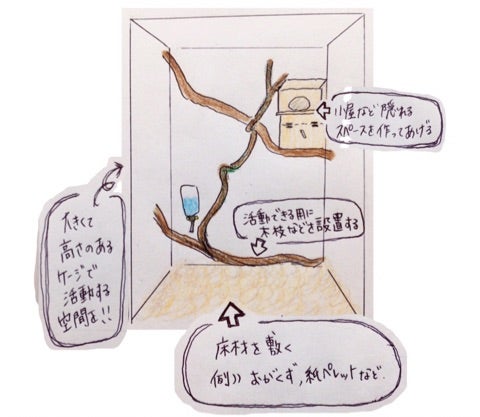 小屋など隠れる
スペースを作ってあげる
活動できる用に
木枝などを設置する
大きくて
高さのある
ケージで
活動する
空間を!!
床材を敷く
例)) おがくず,紙ペレットなど.